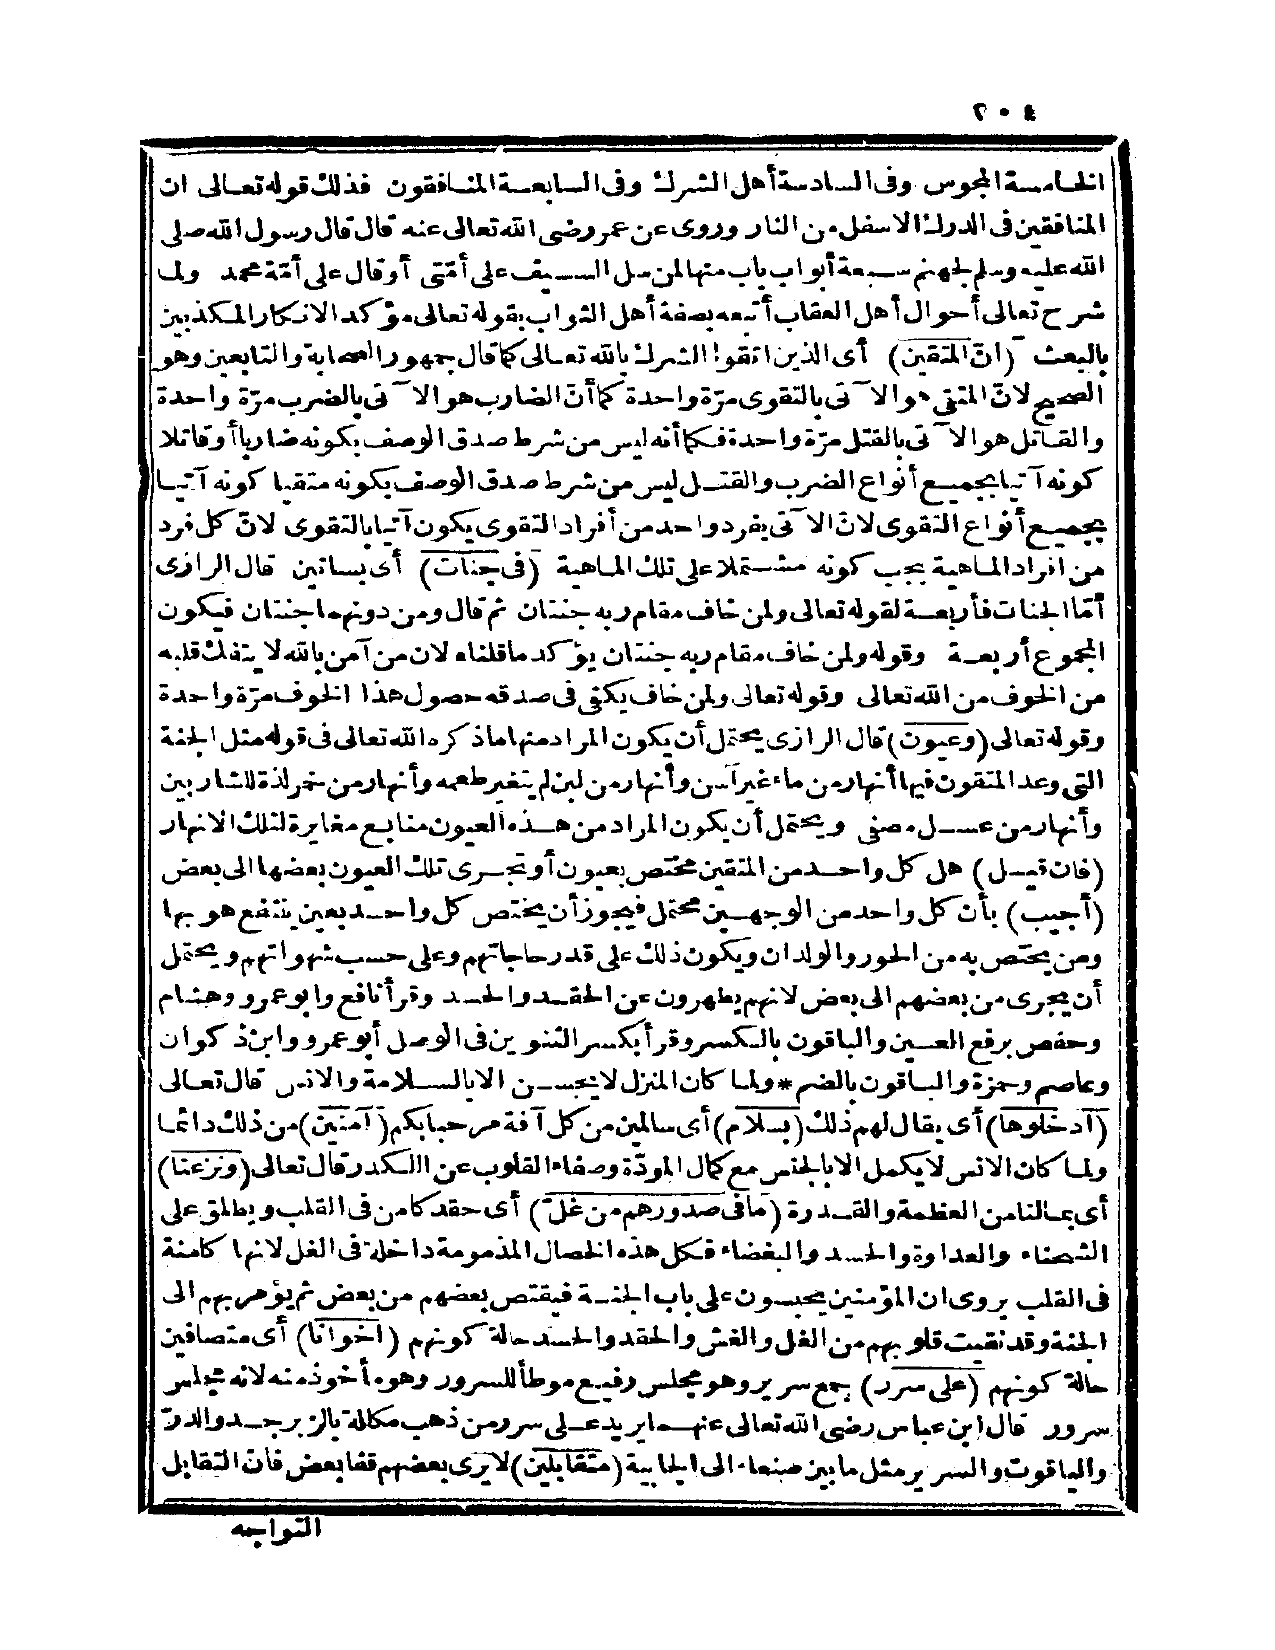 ٢٠٤
الخامسة المجوس وفى السادسة أهل الشرك وفى السابعة المنافقون فذلك قوله تعالى ان
المنافقين فى الدرك الاسفل من النار وروى عن عمر رضى الله تعالى عنه قال قال رسول الله صلى
الله عليه وسلم لجهنم سبعة أبواب باب منها لمن سل السيف على أمّتى أو قال على أمّة محمد ولما
شرح تعالى أحوال أهل العقاب أتبعه بصفة أهل الثواب بقوله تعالى مؤكد الانكار المكذبين
بالبعث (انّ المتقين) أى الذين اتقوا الشرك بالله تعالى كما قال جمهور الصحابة والتابعين وهو
الصحيح لانّ المتقى هو الآتى بالتقوى مرّة واحدة كما أنّ الضارب هو الآتى بالضرب مرّة واحدة
والقاتل هو الآتى بالقتل مرّة واحدة فكما أنه ليس من شرط صدق الوصف بكونه ضاربا أو قاتلا
كونه آتيا بجميع أنواع الضرب والقتل ليس من شرط صدق الوصف بكونه متقيا كونه آتيا
بجميع أنواع التقوى لانّ الآتى بفرد واحد من أفراد التقوى يكون آتيا بالتقوى لانّ كل فرد
من افراد الماهية يجب كونه مشتملا على تلك الماهية (فى جنات) أى بساتين قال الرازى
أمّا الجنات فأربعة لقوله تعالى ولمن خاف مقام ربه جنتان ثم قال ومن دونهما جنتان فيكون
المجموع أربعة وقوله ولمن خاف مقام ربه جنتان يؤكد ما قلناه لان من آمن بالله لا ينفك قلبه
من الخوف من الله تعالى وقوله تعالى ولمن خاف يكفى فى صدقه حصول هذا الخوف مرّة واحدة
وقوله تعالى (وعيون) قال الرازى يحتمل أن يكون المراد منها ما ذكره الله تعالى فى قوله مثل الجنة
التى وعد المتقون فيها أنهار من ماء غير آسن وأنهار من لبن لم يتغير طعمه وأنهار من خمر لذة للشاربين
وأنهار من عسل مصفى ويحتمل أن يكون المراد من هذه العيون منابع مغايرة لتلك الانهار
(فان قيل) هل كل واحد من المتقين مختص بعيون أو تجرى تلك العيون بعضها الى بعض
(أجيب) بأن كل واحد من الوجهين محتمل فيجوز أن يختص كل واحد بعين ينتفع هو بها
ومن يختص به من الحور والولدان ويكون ذلك على قدر حاجاتهم وعلى حسب شهواتهم ويحتمل
أن يجرى من بعضهم الى بعض لانهم يطهرون عن الحقد والحسد وقرأ نافع وابو عمرو وهشام
وحفص برفع العين والباقون بالكسر وقرأ بكسر التنوين فى الوصل أبو عمرو وابن ذكوان
وعاصم وحمزة والباقون بالضم * ولما كان المنزل لا يحسن الا بالسلامة والانس قال تعالى
(ادخلوها) أى يقال لهم ذلك (بسلام) أى سالمين من كل آفة مرحبا بكم (آمنين) من ذلك دائما
ولما كان الانس لا يكمل الا بالجنس مع كمال المودّة وصفاء القلوب عن الكدر قال تعالى (ونزعنا)
أى بمالنا من العظمة والقدرة (ما فى صدورهم من غلّ) أى حقد كامن فى القلب ويطلق على
الشحناء والعداوة والحسد والبغضاء فكل هذه الخصال المذمومة داخلة فى الغل لانها كامنة
فى القلب يروى ان المؤمنين يحبسون على باب الجنة فيقتص بعضهم من بعض ثم يؤمر بهم الى
الجنة وقد نقيت قلوبهم من الغل والغش والحقد والحسد حالة كونهم (اخوانا) أى متصافين
حالة كونهم (على سرر) جمع سرير وهو مجلس رفيع موطأ للسرور وهو مأخوذ منه لانه مجلس
سرور قال ابن عباس رضى الله تعالى عنهما يريد على سرر من ذهب مكللة بالزبرجد والدرّ
والياقوت والسرير مثل ما بين صنعاء الى الجابية (متقابلين) لا يرى بعضهم قفا بعض فان التقابل
التواجه